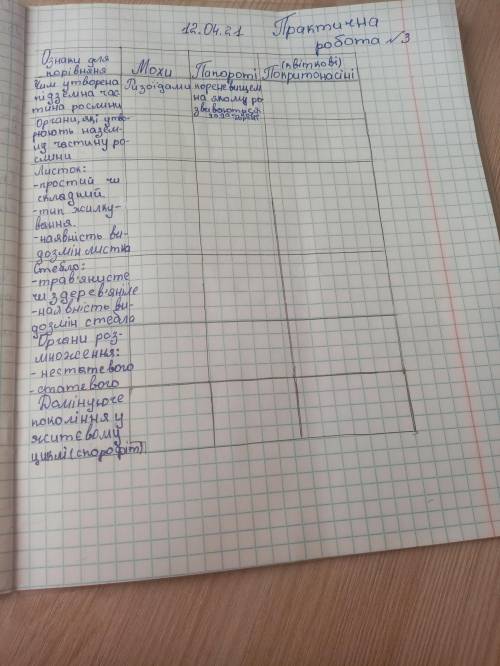 12.04.21 Практична
робота №3
Ознаки для
порівняння
Мохи
Папороті
(квіткові)
Покритонасіні
Чим утворена
підземна час-
тина рослини
Ризоїдами
кореневищем
на якому ро
звиваються
Органи, які утво-
рюють назем-
ну частину ро-
слини
Листок:
-простий чи
складний
-тип жилку-
вання.
-наявність ви-
дозмін листка
Стебло:
-трав'янисте
чи здерев'яніле
-наявність ви-
дозмін стебла
Органи роз-
множення:
-нестатевого
-статевого
Домінуюче
покоління у
життєвому
циклі (спорофіт)